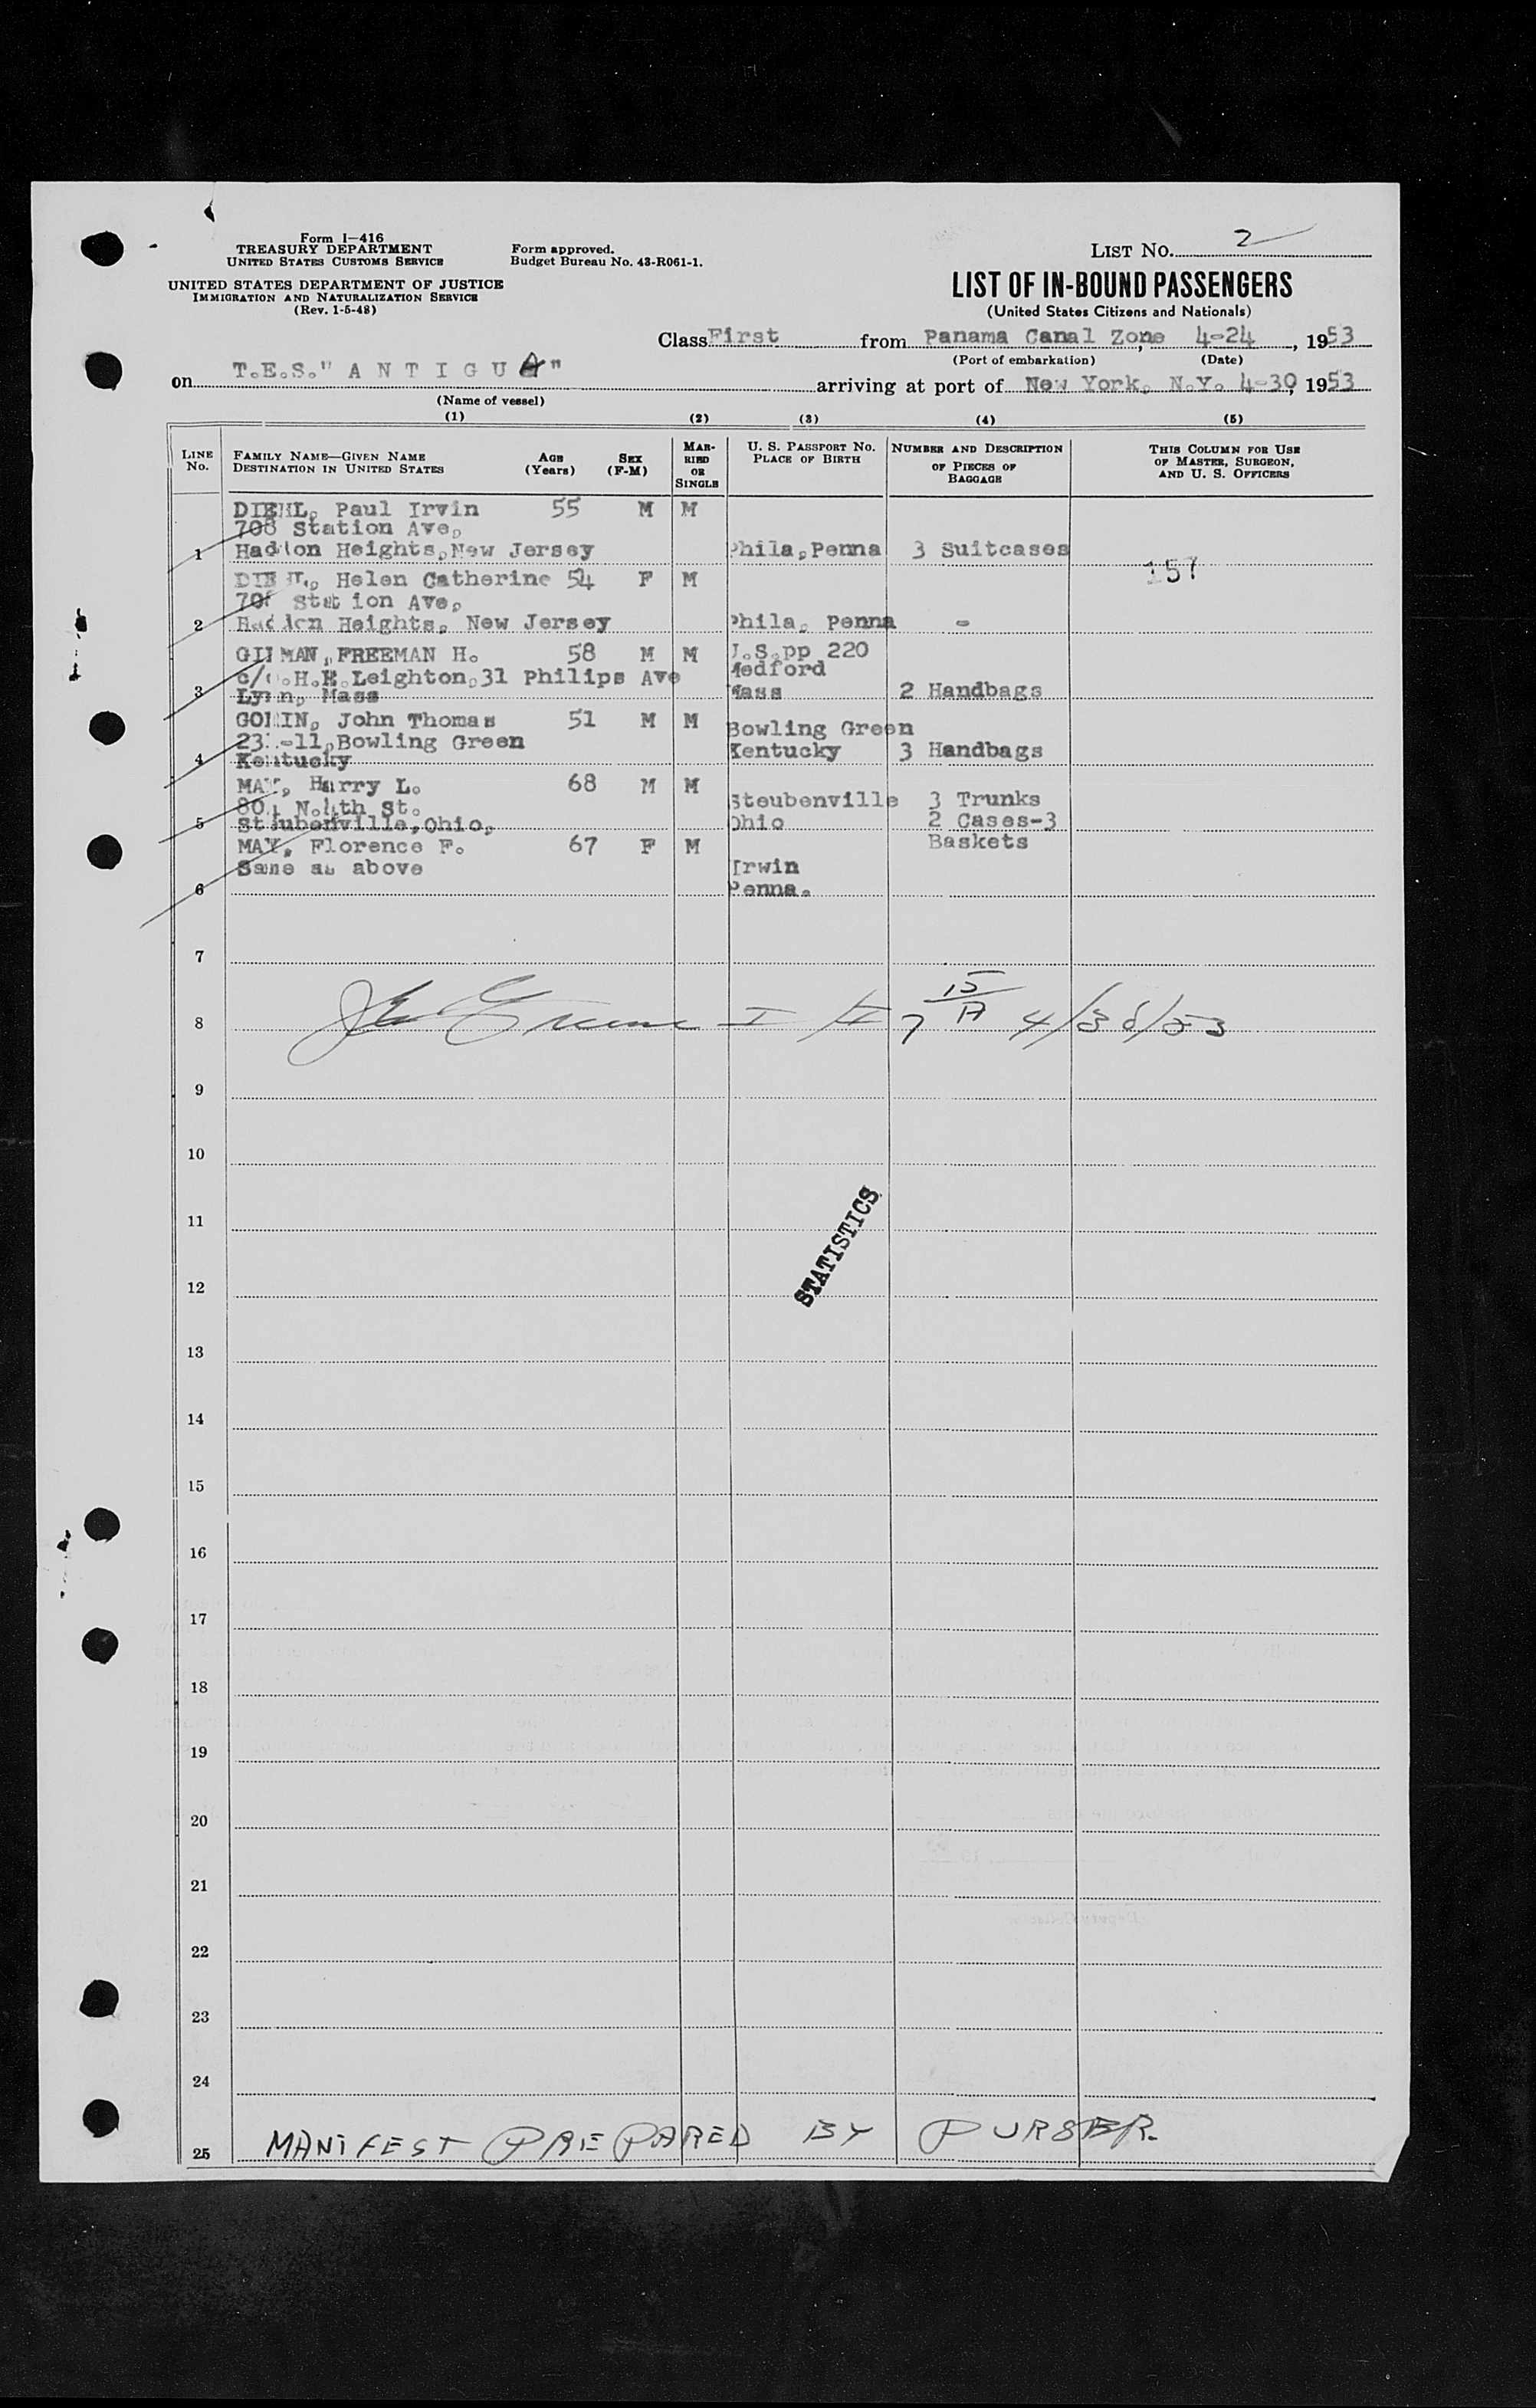 Form I-416
TREASURY DEPARTMENT
UNITED STATES CUSTOMS SERVICE
UNITED STATES DEPARTMENT OF JUSTICE
IMMIGRATION AND NATURALIZATION SERVICE
(Rev. 1-5-48)
Form approved.
Budget Bureau No. 43-R061-1.
LIST NO. 2
LIST OF IN-BOUND PASSENGERS
(United States Citizens and Nationals)
Class First from Panama Canal Zone, 4-24, 1953
(Port of embarkation) (Date)
on T.E.S." A N T I G U A " arriving at port of New York, N.Y. 4-30, 1953
(Name of vessel)
(1) (2) (3) (4) (5)
LINE No. FAMILY NAME—GIVEN NAME DESTINATION IN UNITED STATES AGE (Years) SEX (F-M) MARRIED OR SINGLE U. S. PASSPORT NO. PLACE OF BIRTH NUMBER AND DESCRIPTION OF PIECES OF BAGGAGE THIS COLUMN FOR USE OF MASTER, SURGEON, AND U. S. OFFICERS
DIEHL, Paul Irvin 55 M M
708 Station Ave,
1 Haddon Heights, New Jersey Phila, Penna 3 Suitcases
157
DIEHL, Helen Catherine 54 F M
708 Station Ave,
2 Haddon Heights, New Jersey Phila, Penna -
GILMAN, FREEMAN H. 58 M M U.S.pp 220
c/o.H.E.Leighton,31 Philips Ave Medford
3 Lynn, Mass Mass 2 Handbags
John Thomas 51 M M Bowling Green
Bowling Green
4 Kentucky Kentucky 3 Handbags
MAY, Harry L. 68 M M
N.4th St. Steubenville 3 Trunks
5 Steubenville, Ohio, Ohio 2 Cases-3
MAY, Florence F. 67 F M Baskets
Same as above Irwin
6 Penna.
7
8 4/30/53
9
10
11
STATISTICS
12
13
14
15
16
17
18
19
20
21
22
23
24
25 MANIFEST PREPARED BY PURSER.